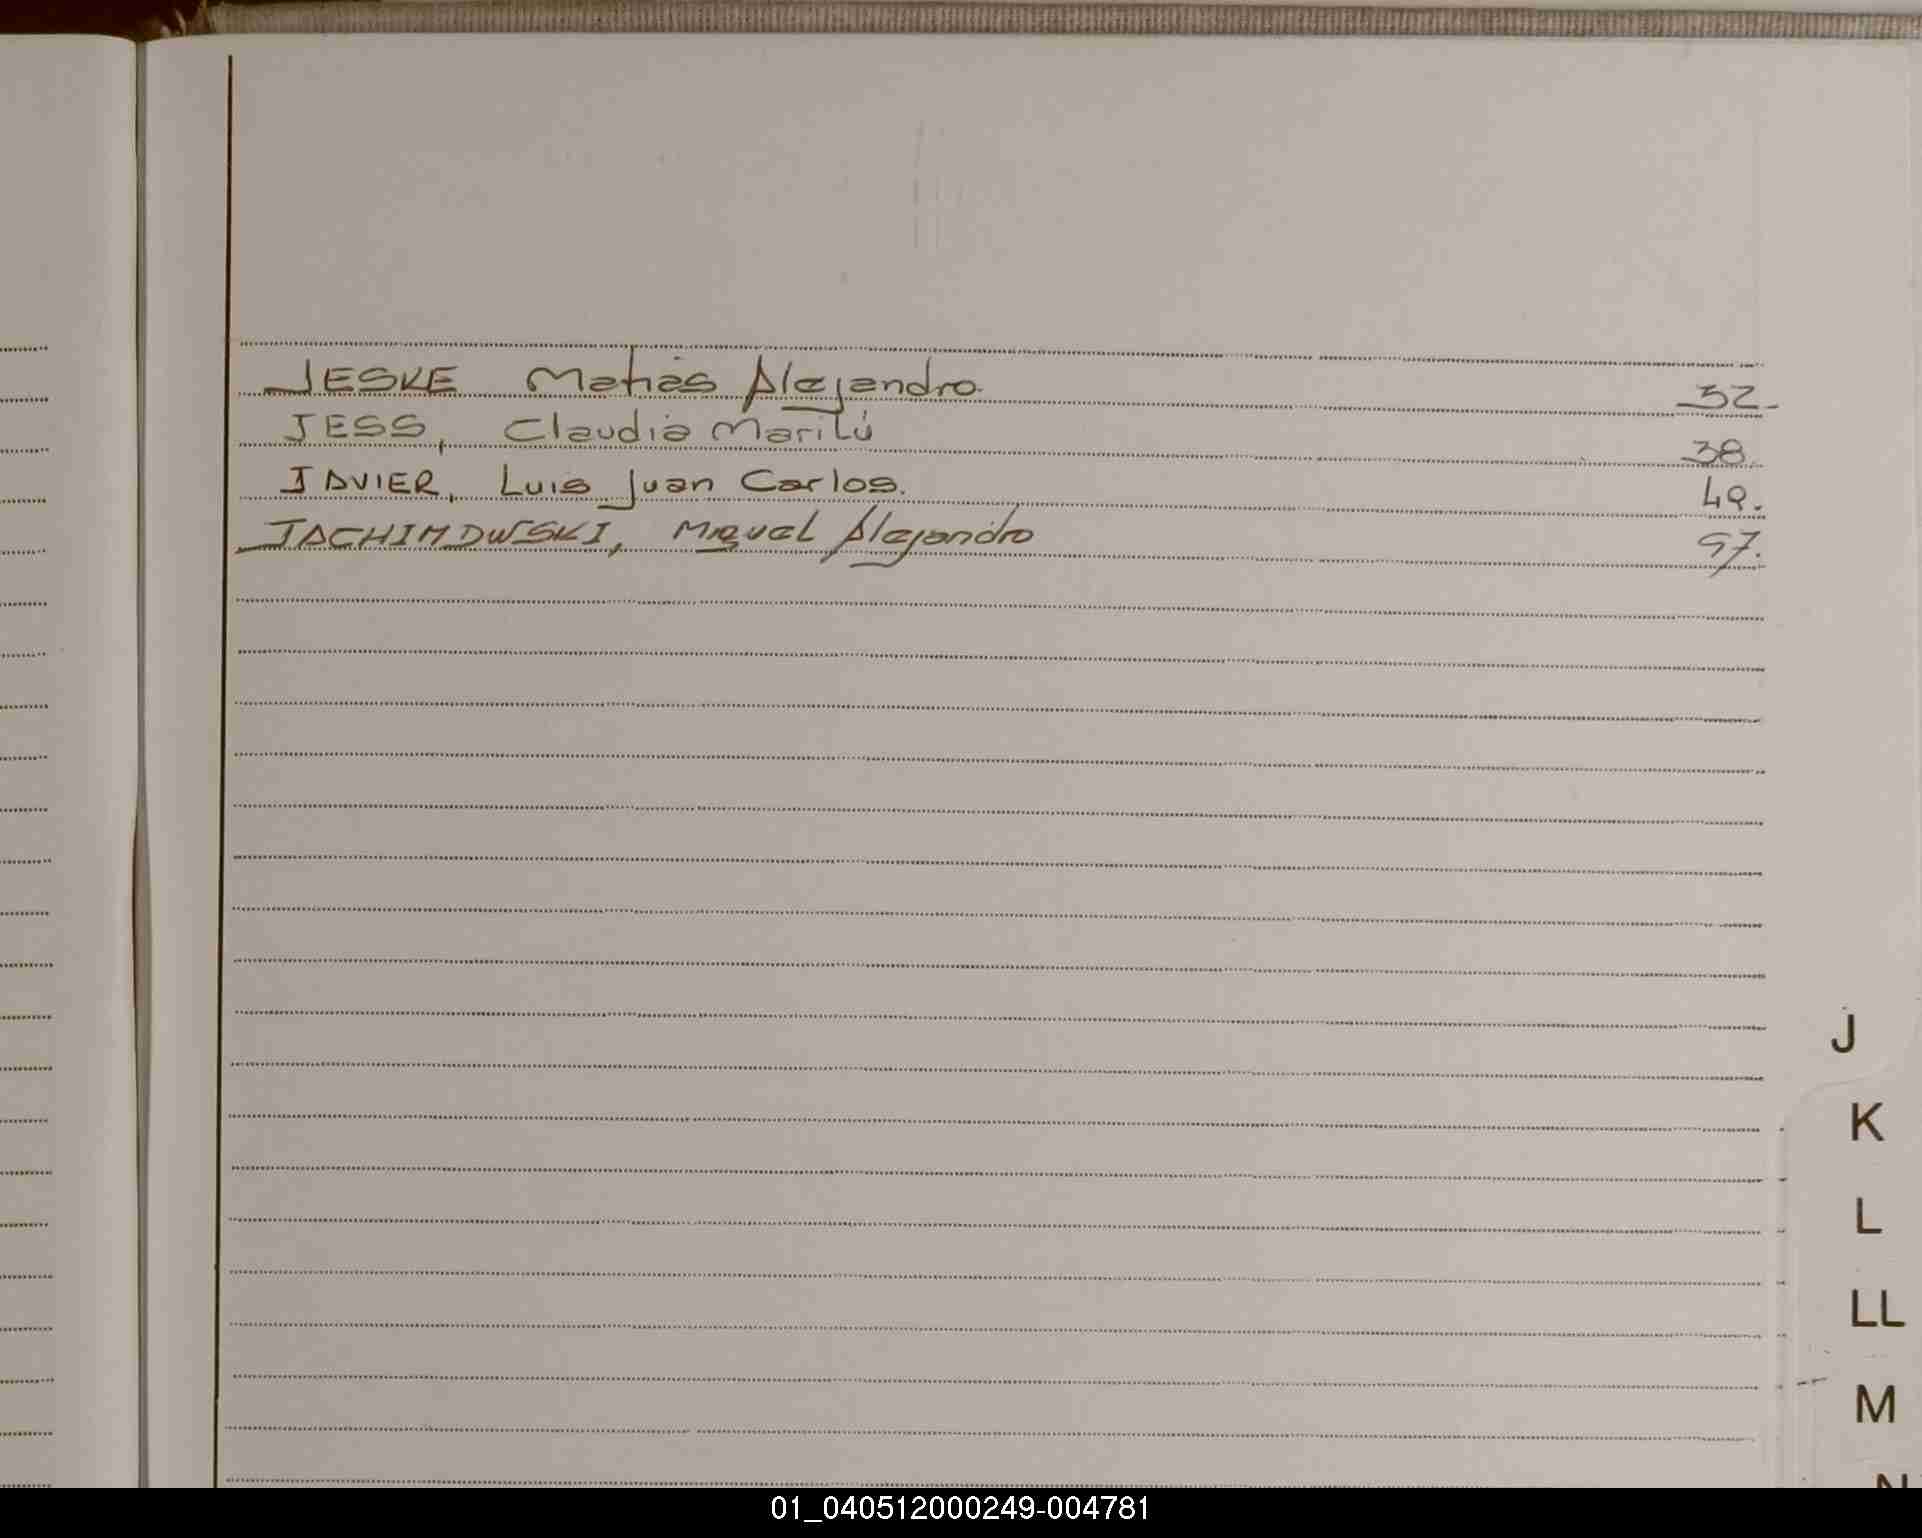 JESKE Matías Alejandro. 32-
JESS, Claudia Marilú 38.
JAVIER, Luis Juan Carlos. 49.
JACHIMOWSKI, Miguel Alejandro 97.
J
K
L
LL
M
N
01_040512000249-004781